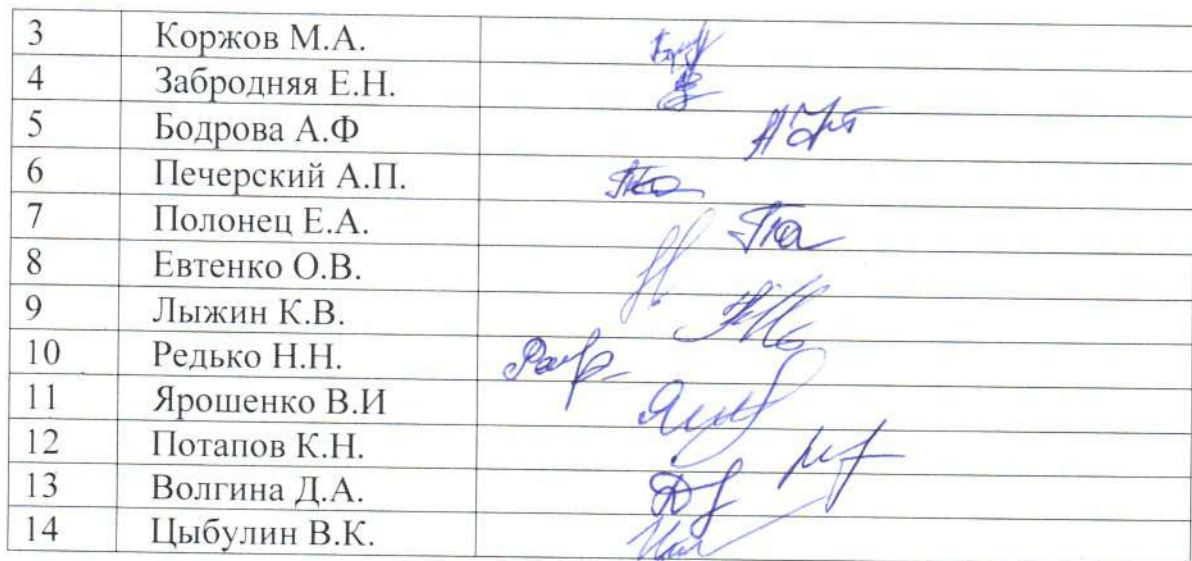 3 Коржов М.А.
4 Забродняя Е.Н.
5 Бодрова А.Ф
6 Печерский А.П.
7 Полонец Е.А.
8 Евтенко О.В.
9 Лыжин К.В.
10 Редько Н.Н.
11 Ярошенко В.И
12 Потапов К.Н.
13 Волгина Д.А.
14 Цыбулин В.К.